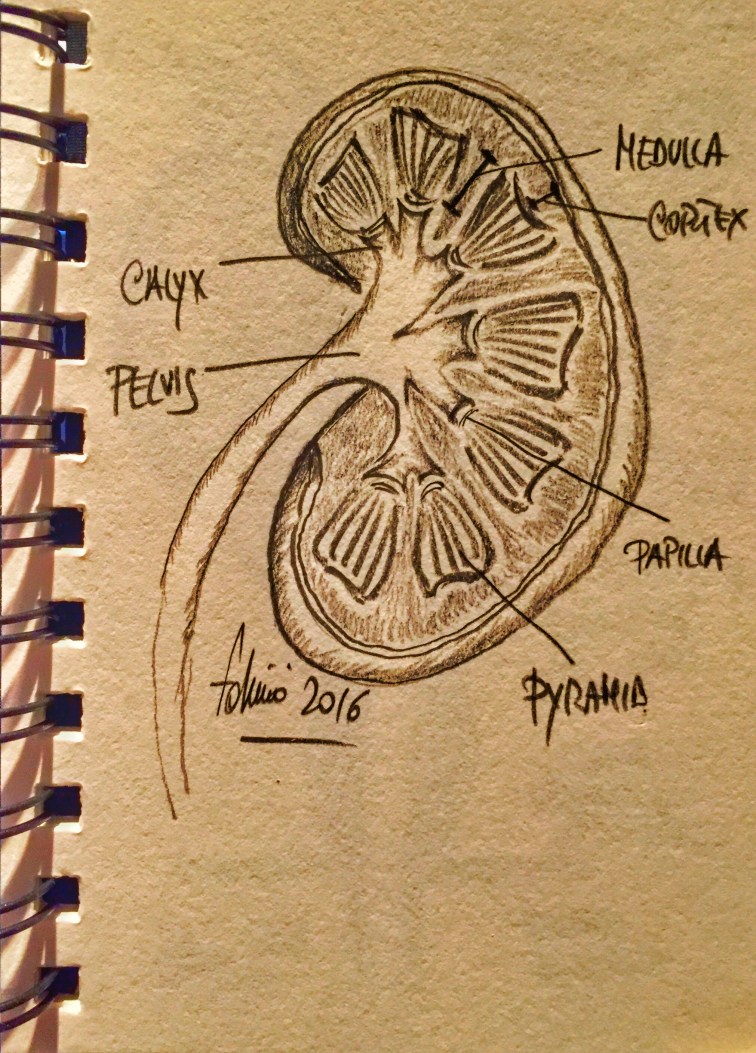 MEDULLA
CORTEX
CALYX
PELVIS
PAPILLA
PYRAMID
2016